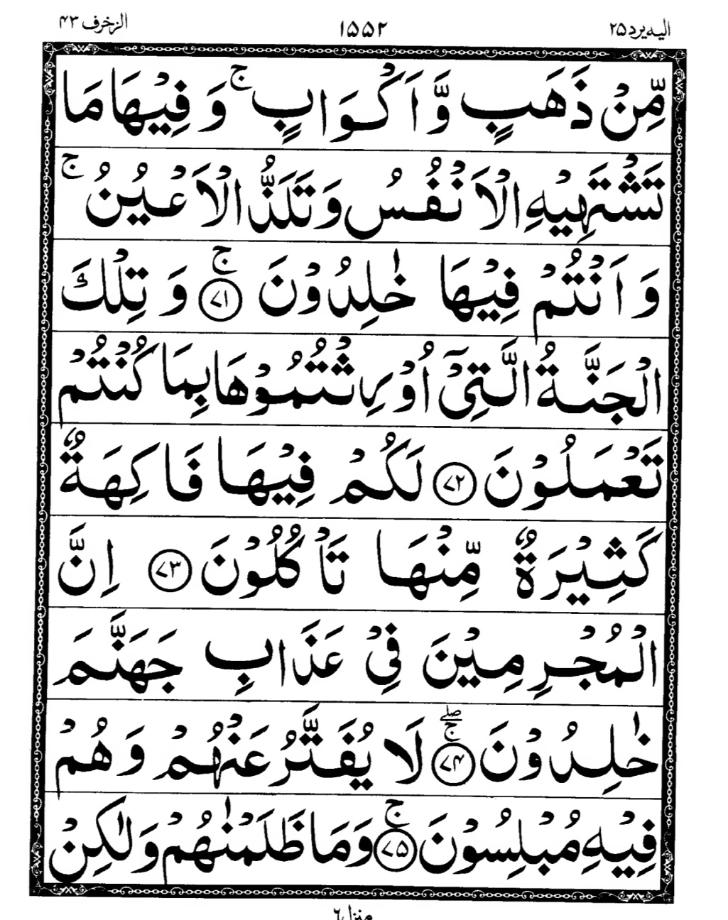 الیه یرد ۲۵ ۱۵۵۲ الزخرف ۴۳
مِّنۡ ذَهَبٍ وَّاَكۡوَابٍ ۚ وَ فِيۡهَا مَا
تَشۡتَهِيۡهِ الۡاَنۡفُسُ وَتَلَذُّ الۡاَعۡيُنُ ۚ
وَاَنۡتُمۡ فِيۡهَا خٰلِدُوۡنَ ۚ ﴿۷۱﴾ وَ تِلۡكَ
الۡجَنَّةُ الَّتِىۡۤ اُوۡرِثۡتُمُوۡهَا بِمَا كُنۡتُمۡ
تَعۡمَلُوۡنَ ﴿۷۲﴾ لَكُمۡ فِيۡهَا فَاكِهَةٌ
كَثِيۡرَةٌ مِّنۡهَا تَاۡكُلُوۡنَ ﴿۷۳﴾ اِنَّ
الۡمُجۡرِمِيۡنَ فِىۡ عَذَابِ جَهَنَّمَ
خٰلِدُوۡنَ ۖۚ ﴿۷۴﴾ لَا يُفَتَّرُ عَنۡهُمۡ وَهُمۡ
فِيۡهِ مُبۡلِسُوۡنَ ۚ ﴿۷۵﴾ وَمَا ظَلَمۡنٰهُمۡ وَلٰكِنۡ
منزل ۶